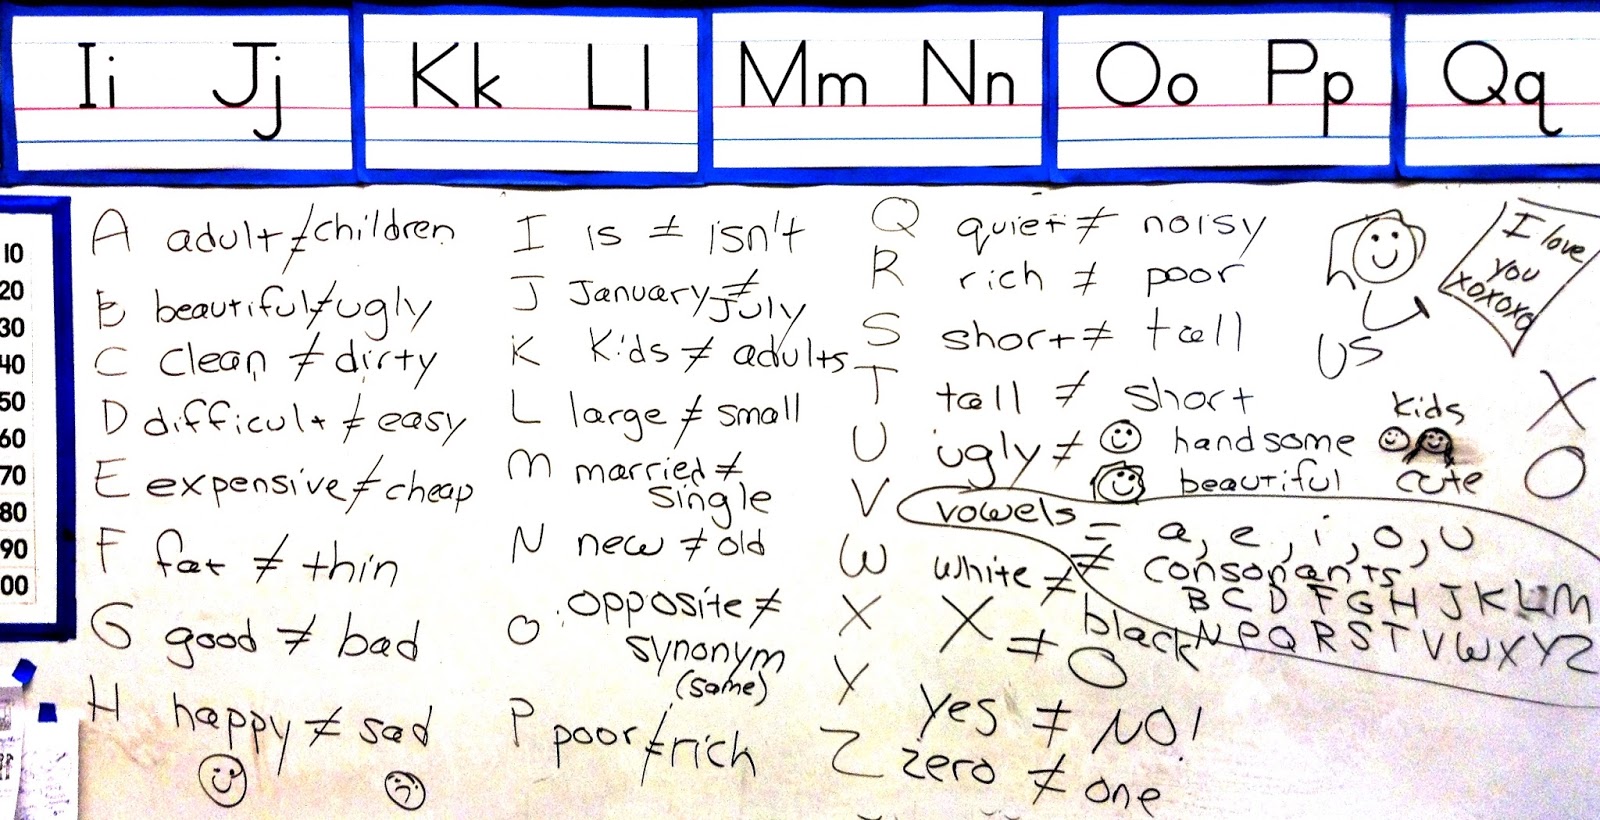 Ii Jj Kk Ll Mm Nn Oo Pp Qq
10
20
30
40
50
60
70
80
90
00
A adult ≠ children
B beautiful ≠ ugly
C clean ≠ dirty
D difficult ≠ easy
E expensive ≠ cheap
F fat ≠ thin
G good ≠ bad
H happy ≠ sad
I is ≠ isn't
J January ≠
July
K Kids ≠ adults
L large ≠ small
M married ≠
single
N new ≠ old
O opposite ≠
synonym
(same)
P poor ≠ rich
Q quiet ≠ noisy
R rich ≠ poor
S short ≠ tall
T tall ≠ short
U ugly ≠ handsome
beautiful
kids
cute
V vowels = a, e, i, o, u
≠ consonants
B C D F G H J K L M
N P Q R S T V W X Y Z
W white ≠
black
X X ≠ O
Y Yes ≠ NO!
Z zero ≠ one
I love
you
xoxoxo
US
X
O